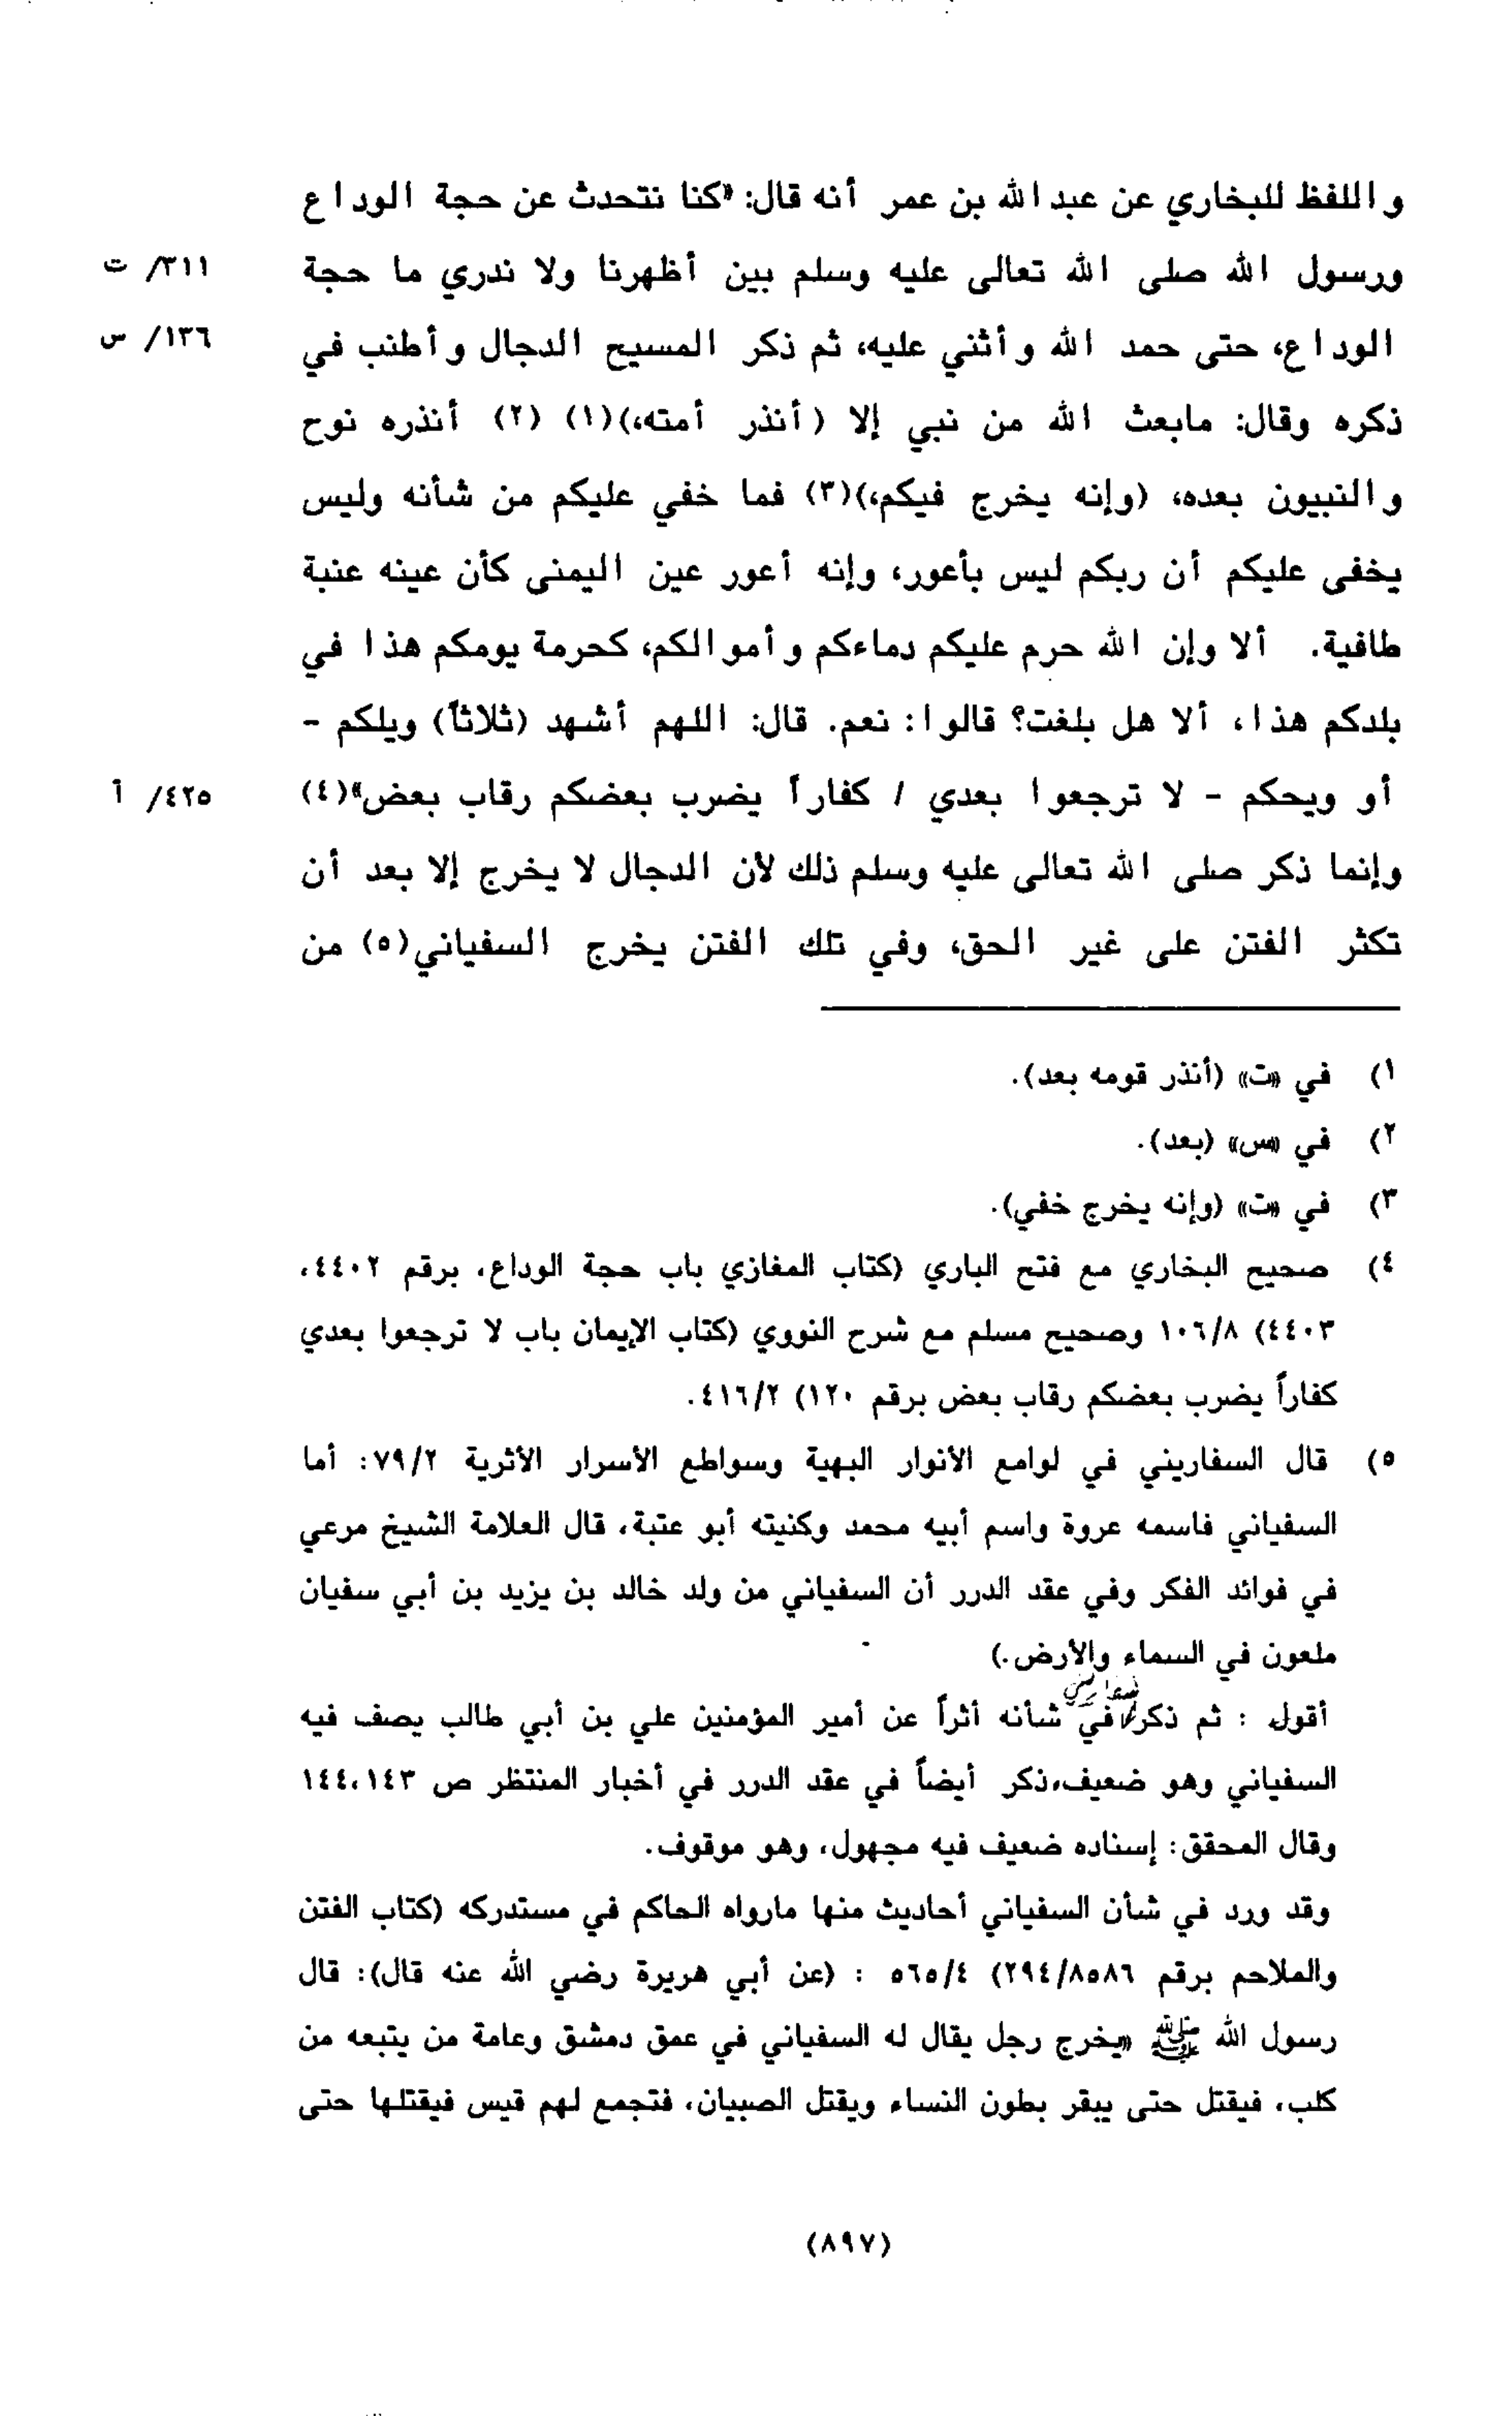 واللفظ للبخاري عن عبدالله بن عمر أنه قال: «كنا نتحدث عن حجة الوداع
ورسول الله صلى الله تعالى عليه وسلم بين أظهرنا ولا ندري ما حجة ٣١١/ ت
الوداع، حتى حمد الله وأثني عليه، ثم ذكر المسيح الدجال وأطنب في ١٣٦/ س
ذكره وقال: مابعث الله من نبي إلا (أنذر أمته،)(١) (٢) أنذره نوح
والنبيون بعده، (وإنه يخرج فيكم،)(٣) فما خفي عليكم من شأنه وليس
يخفى عليكم أن ربكم ليس بأعور، وإنه أعور عين اليمنى كأن عينه عنبة
طافية. ألا وإن الله حرم عليكم دماءكم وأموالكم، كحرمة يومكم هذا في
بلدكم هذا، ألا هل بلغت؟ قالوا: نعم. قال: اللهم أشهد (ثلاثاً) ويلكم -
أو ويحكم - لا ترجعوا بعدي / كفاراً يضرب بعضكم رقاب بعض»(٤) ٤٢٥/ أ
وإنما ذكر صلى الله تعالى عليه وسلم ذلك لأن الدجال لا يخرج إلا بعد أن
تكثر الفتن على غير الحق، وفي تلك الفتن يخرج السفياني(٥) من
١) في «ت» (أنذر قومه بعد).
٢) في «س» (بعد).
٣) في «ت» (وإنه يخرج خفي).
٤) صحيح البخاري مع فتح الباري (كتاب المغازي باب حجة الوداع، برقم ٤٤٠٢،
٤٤٠٣) ١٠٦/٨ وصحيح مسلم مع شرح النووي (كتاب الإيمان باب لا ترجعوا بعدي
كفاراً يضرب بعضكم رقاب بعض برقم ١٢٠) ٤١٦/٢.
٥) قال السفاريني في لوامع الأنوار البهية وسواطع الأسرار الأثرية ٧٩/٢: أما
السفياني فاسمه عروة واسم أبيه محمد وكنيته أبو عتبة، قال العلامة الشيخ مرعي
في فوائد الفكر وفي عقد الدرر أن السفياني من ولد خالد بن يزيد بن أبي سفيان
ملعون في السماء والأرض.)
أقول : ثم ذكر في شأنه أثراً عن أمير المؤمنين علي بن أبي طالب يصف فيه
السفياني وهو ضعيف،ذكر أيضاً في عقد الدرر في أخبار المنتظر ص ١٤٤،١٤٣
وقال المحقق: إسناده ضعيف فيه مجهول، وهو موقوف.
وقد ورد في شأن السفياني أحاديث منها مارواه الحاكم في مستدركه (كتاب الفتن
والملاحم برقم ٢٩٤/٨٥٨٦) ٥٦٥/٤ : (عن أبي هريرة رضي الله عنه قال): قال
رسول الله ﷺ «يخرج رجل يقال له السفياني في عمق دمشق وعامة من يتبعه من
كلب، فيقتل حتى يبقر بطون النساء ويقتل الصبيان، فتجمع لهم قيس فيقتلها حتى
(٨٩٧)